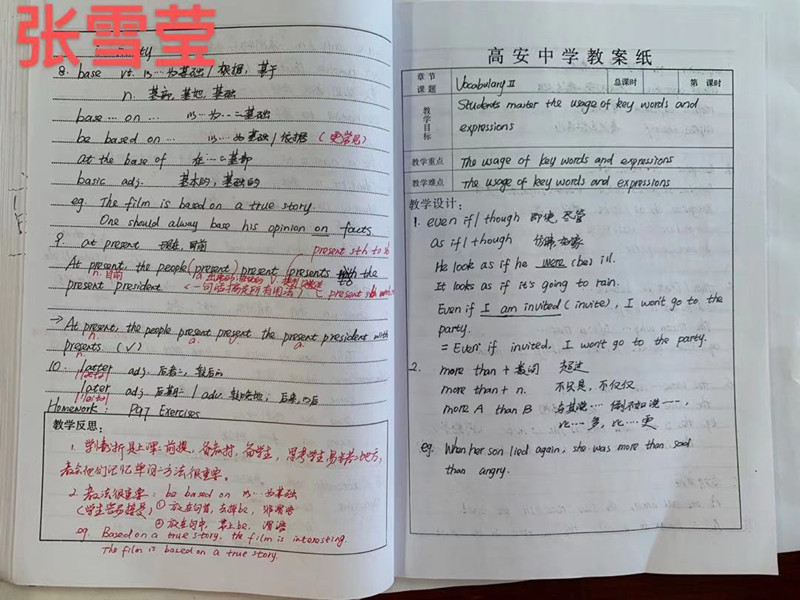 张雪莹
8. base vt. 以…为基础/根据, 基于
n. 基部, 基地, 基础
base … on … 以…为…基础
be based on … 以…为基础/依据 (更常见)
at the base of 在…基部
basic adj. 基本的, 基础的
eg. The film is based on a true story.
One should alway base his opinion on facts.
9. at present 现在, 目前
present sth to sb
At present, the people (present) present (presents the
n. 目前
present president
(一句话搞定所有用法)
present sb with
→ At present, the people present present the present president with
n. a. v. a.
presents. (✓)
10. latter adj. 后者…, 较后的
later adj. 后期…/adv. 较晚地; 后来, 以后
Homework: P97 Exercises
教学反思:
1. 学情分析是上课前提, 备教材, 备学生, 思考学生易迷惑地方,
教会他们记忆单词方法很重要。
2. 教法很重要: be based on 以…为基础
(学生容易接受) ① 放在句首, 去掉be, 非谓语
② 放在句中, 带上be, 谓语
eg. Based on a true story, the film is interesting.
The film is based on a true story.
高安中学教案纸
章节
课题
Vocabulary II
总课时
第 课时
教学目标
Students master the usage of key words and
expressions
教学重点
The usage of key words and expressions
教学难点
The usage of key words and expressions
教学设计:
1. even if/though 即使, 尽管
as if/though 仿佛, 如像
He look as if he were (be) ill.
It looks as if it's going to rain.
Even if I am invited (invite), I won't go to the
party.
= Even if invited, I won't go to the party.
2. more than + 数词 超过
more than + n. 不只是, 不仅仅
more A than B 与其说… 倒不如说…,
比…多, 比…更
eg. When her son lied again, she was more than sad
than angry.